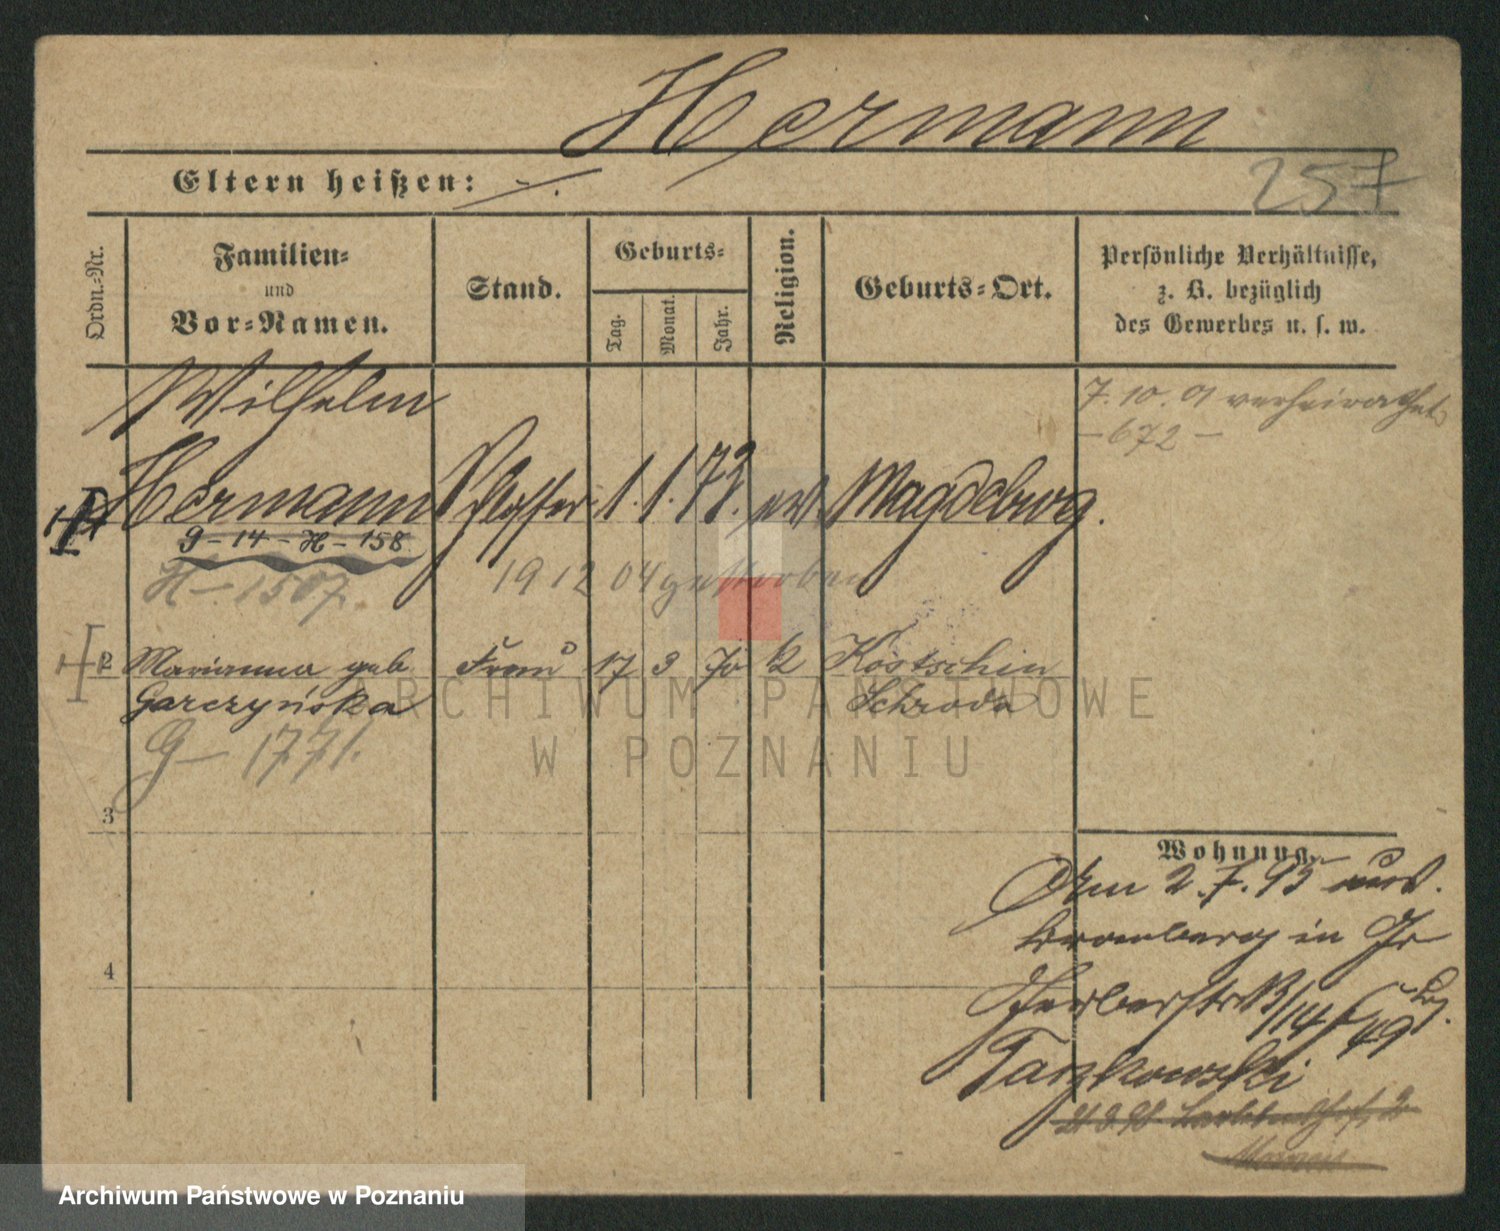 Hermann
Eltern heißen: -.
257
Ordn.-Nr.
Familien-
und
Vor-Namen.
Stand.
Geburts-
Tag.
Monat.
Jahr.
Religion.
Geburts-Ort.
Persönliche Verhältnisse,
z. B. bezüglich
des Gewerbes u. s. w.
7.10.01 verheirathet
-672-
Wilhelm
Hermann Schlosser 1. 1. 73. Magdeburg.
9-14-H-158
H-1507.
19 12 04 gestorben
2 Marianna geb. Frau 17 3 70 k Kostschin
Garczyńska Schroda
G-1771.
ARCHIWUM PAŃSTWOWE
W POZNANIU
3
4
Wohnung.
Am 2.7.95 aus
in Gr
Gerberstr 13/14
49
Archiwum Państwowe w Poznaniu